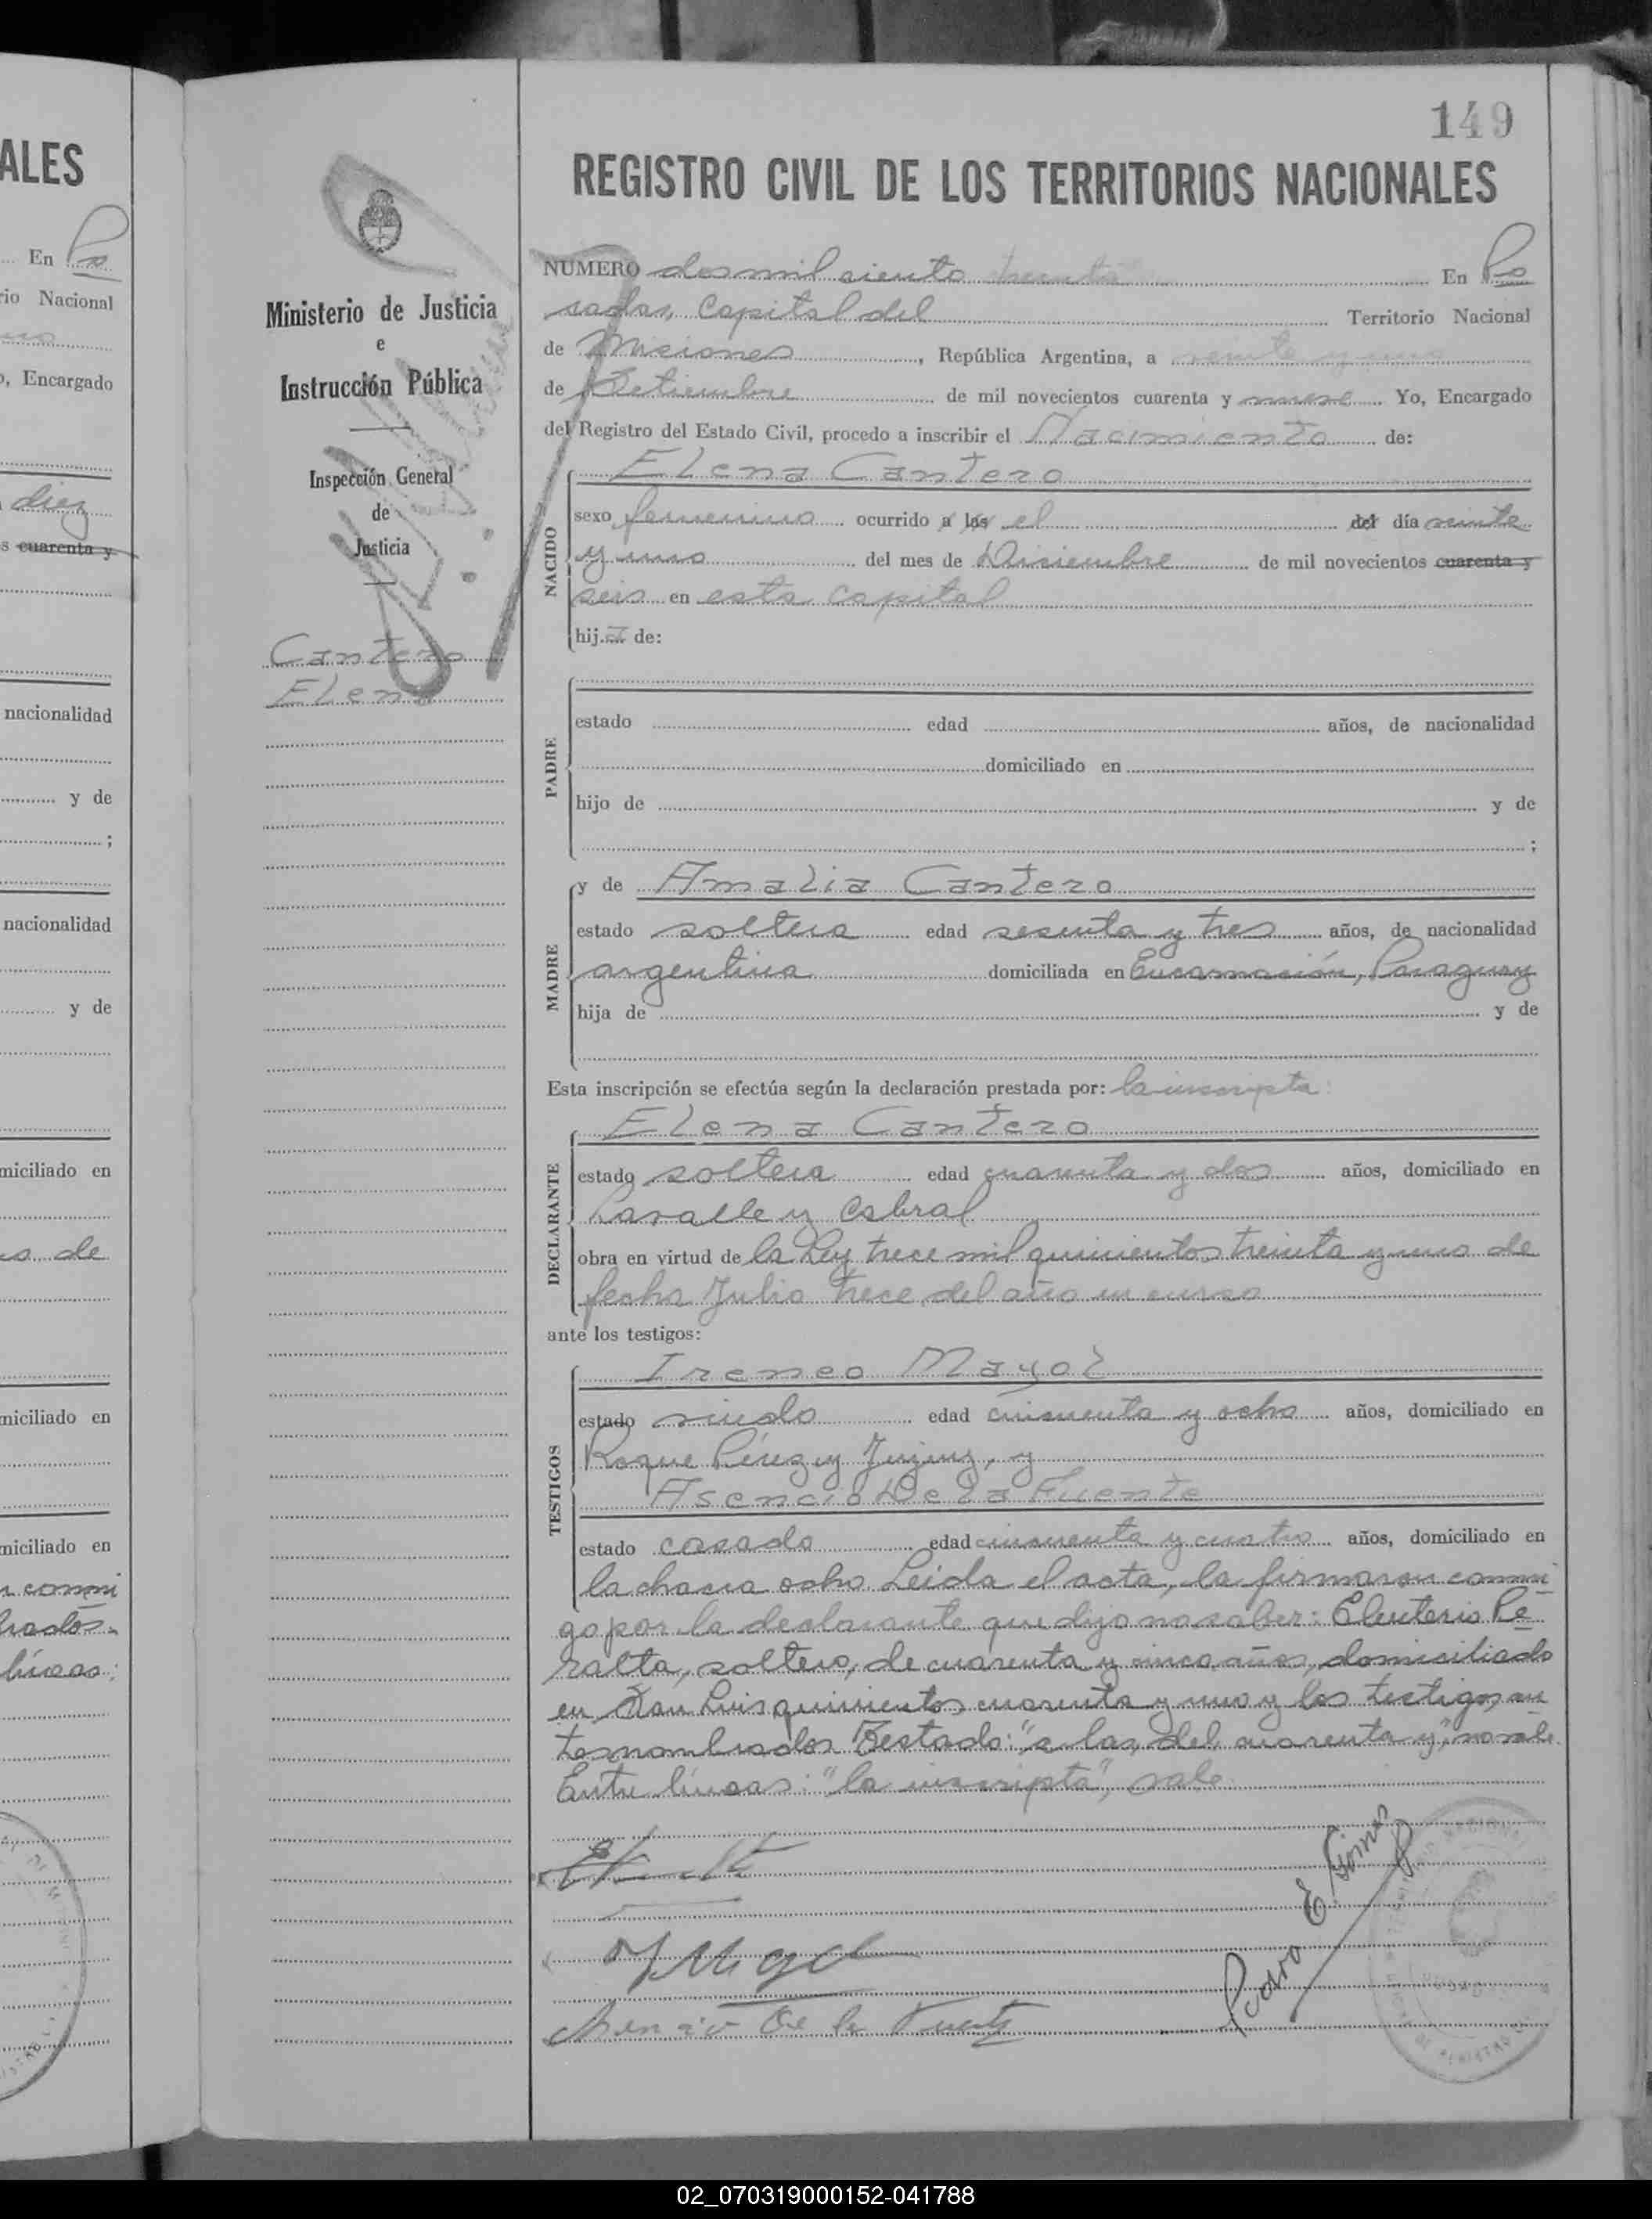 ALES
En Po
rio Nacional
o, Encargado
diez
s cuarenta y
nacionalidad
y de
;
nacionalidad
y de
miciliado en
de
miciliado en
miciliado en
n conmi
brados.
líneas:
149
REGISTRO CIVIL DE LOS TERRITORIOS NACIONALES
Ministerio de Justicia
e
Instrucción Pública
Inspección General
de
Justicia
Cantero
Elena
NUMERO dos mil ciento treinta En Po
sadas, Capital del Territorio Nacional
de Misiones, República Argentina, a veinte y uno
de Setiembre de mil novecientos cuarenta y nueve Yo, Encargado
del Registro del Estado Civil, procedo a inscribir el Nacimiento de:
NACIDO
Elena Cantero
sexo femenino ocurrido a las el del día veinte
y uno del mes de Diciembre de mil novecientos cuarenta y
seis en esta capital
hija de:
PADRE
estado edad años, de nacionalidad
domiciliado en
hijo de y de
;
MADRE
y de Amalia Cantero
estado soltera edad sesenta y tres años, de nacionalidad
argentina domiciliada en Encarnación, Paraguay
hija de y de
Esta inscripción se efectúa según la declaración prestada por: la inscripta:
DECLARANTE
Elena Cantero
estado soltera edad cuarenta y dos años, domiciliado en
Lavalle y Cabral
obra en virtud de la Ley trece mil quinientos treinta y uno de
fecha Julio trece del año en curso
ante los testigos:
TESTIGOS
Ireneo Mayol
estado viudo edad cincuenta y ocho años, domiciliado en
Roque Pérez y Jujuy, y
Asencio De la Fuente
estado casado edad cincuenta y cuatro años, domiciliado en
la chacra ocho. Leída el acta, la firmaron conmi
go por la declarante que dijo no saber: Eleuterio Pe
ralta, soltero, de cuarenta y cinco años, domiciliado
en San Luis quinientos cuarenta y uno y los testigos an
tes nombrados. Testado: "a las, del, cuarenta y", no vale.
Entre líneas: "la inscripta", vale.
I Mayol
Asencio De la Fuente
02_070319000152-041788